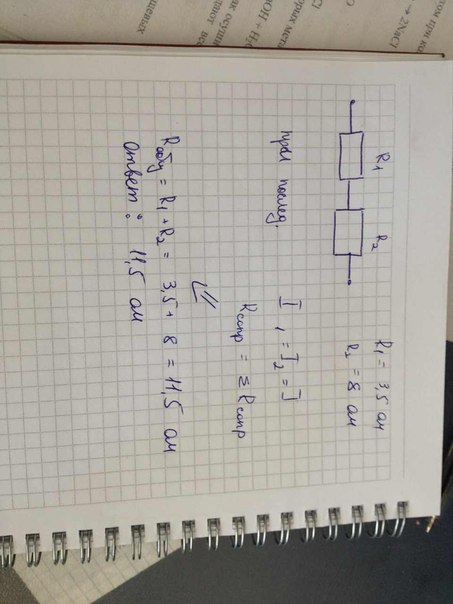 R1 R2
R1 = 3,5 ом
R2 = 8 ом
при послед. I1 = I2 = I
Rсопр = Σ Rсопр
Rобщ = R1 + R2 = 3,5 + 8 = 11,5 ом
Ответ : 11,5 ом